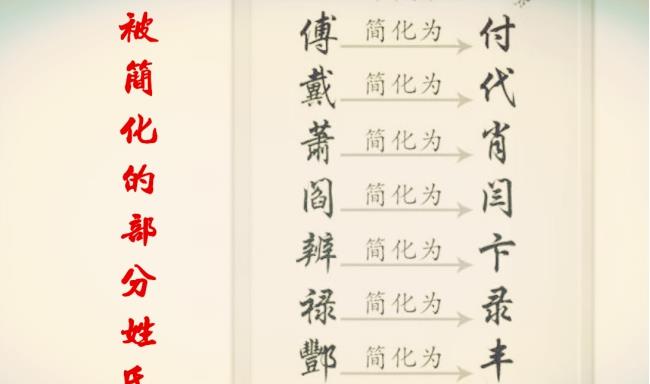 被簡化的部分姓氏
傅 简化为 付
戴 简化为 代
萧 简化为 肖
阎 简化为 闫
辨 简化为 卞
禄 简化为 录
酆 简化为 丰